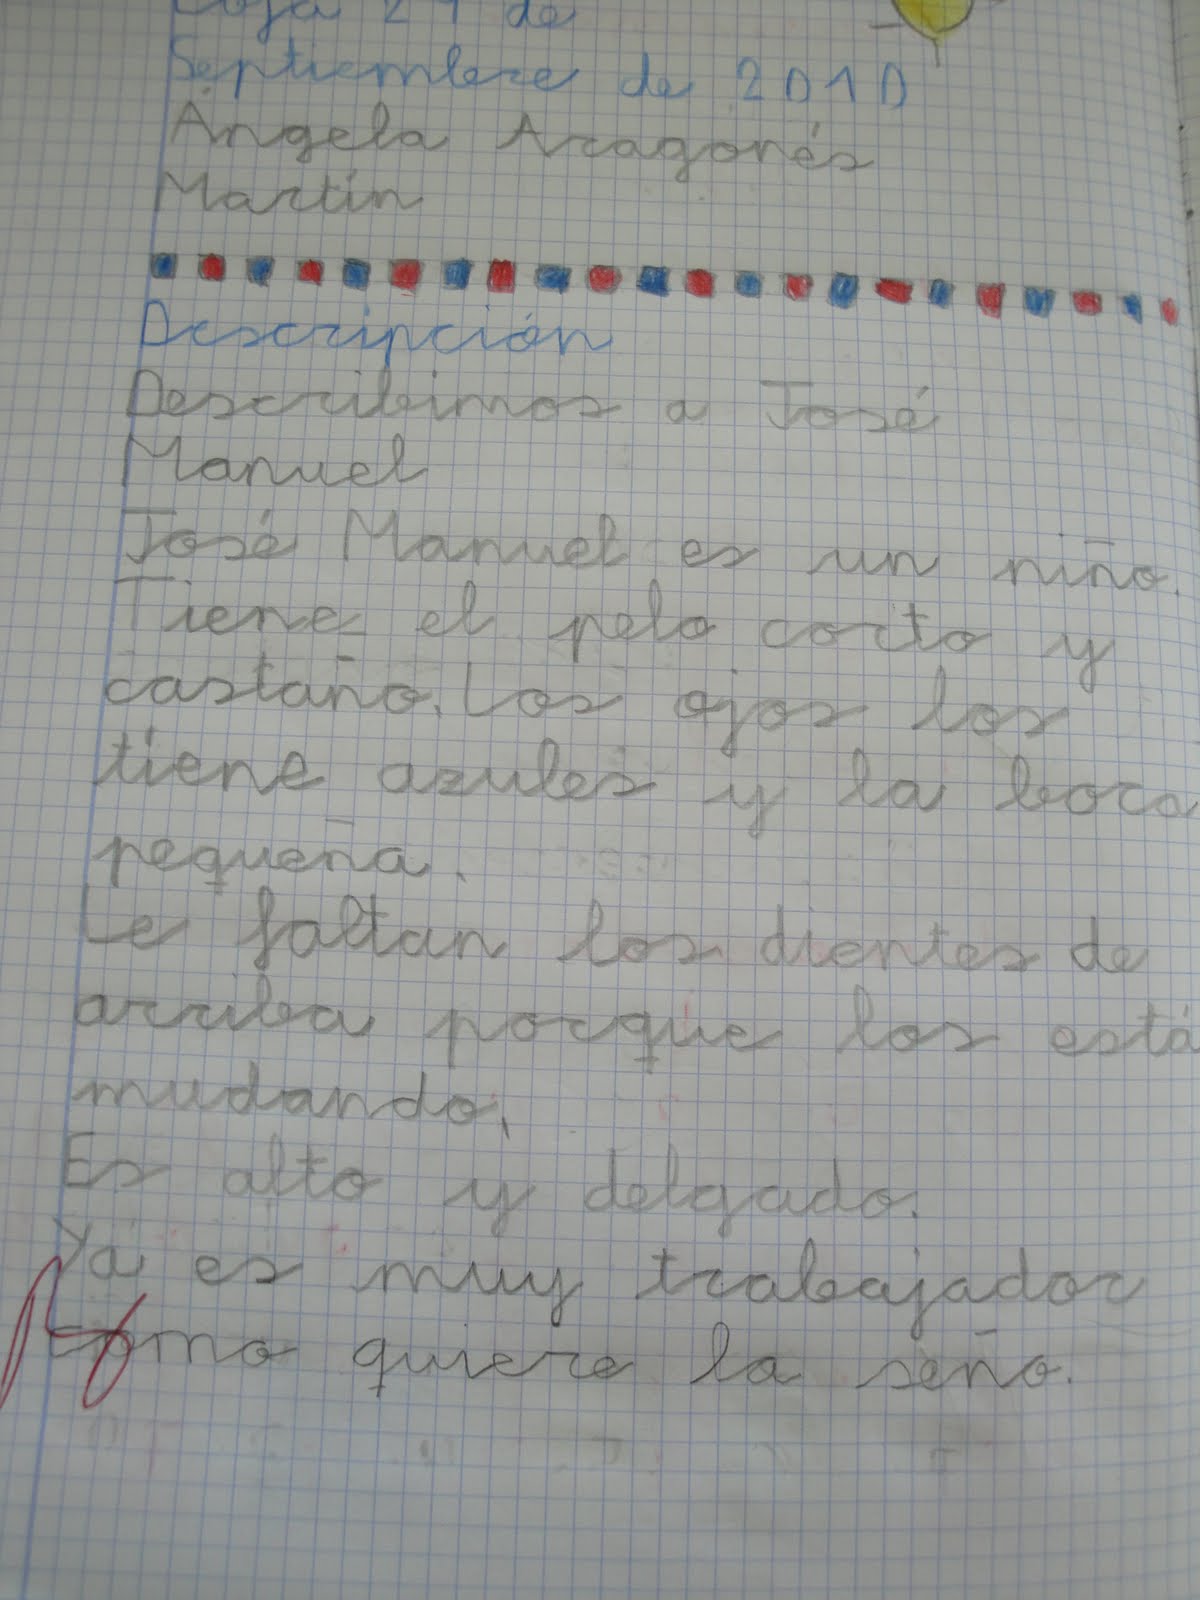 Loja 21 de
Septiembre de 2010
Ángela Aragonés
Martín
Descripción
Describimos a José
Manuel
José Manuel es un niño.
Tiene el pelo corto y
castaño. Los ojos los
tiene azules y la boca
pequeña.
Le faltan los dientes de
arriba porque los está
mudando.
Es alto y delgado.
Ya es muy trabajador
como quiere la seño.